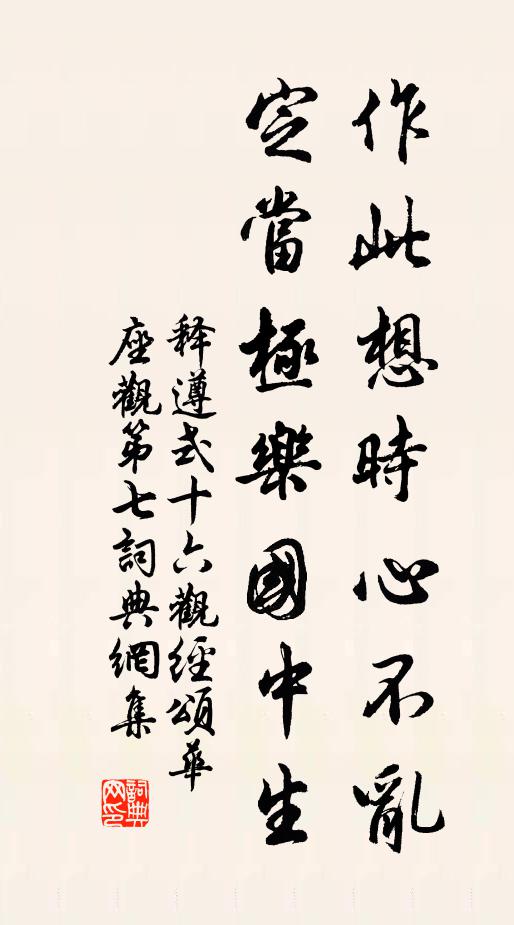 作此想時心不亂
定當極樂國中生
释遵式十六觀經頌華
座觀第七詞典網集
詞典网印